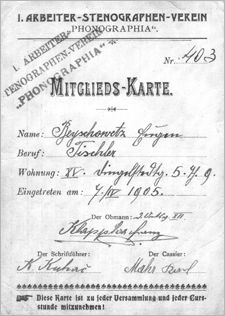 I. ARBEITER-STENOGRAPHEN-VEREIN
"PHONOGRAPHIA".
I. ARBEITER-
STENOGRAPHEN-VEREIN
"PHONOGRAPHIA"
Nr. 403
MITGLIEDS-KARTE.
Name: Eugen
Beruf: Tischler
Wohnung: XV. 5. 9.
Eingetreten am 7/IV 1905.
Der Obmann:
Der Schriftführer: Der Cassier:
Diese Karte ist zu jeder Versammlung und jeder Curs-
stunde mitzunehmen!